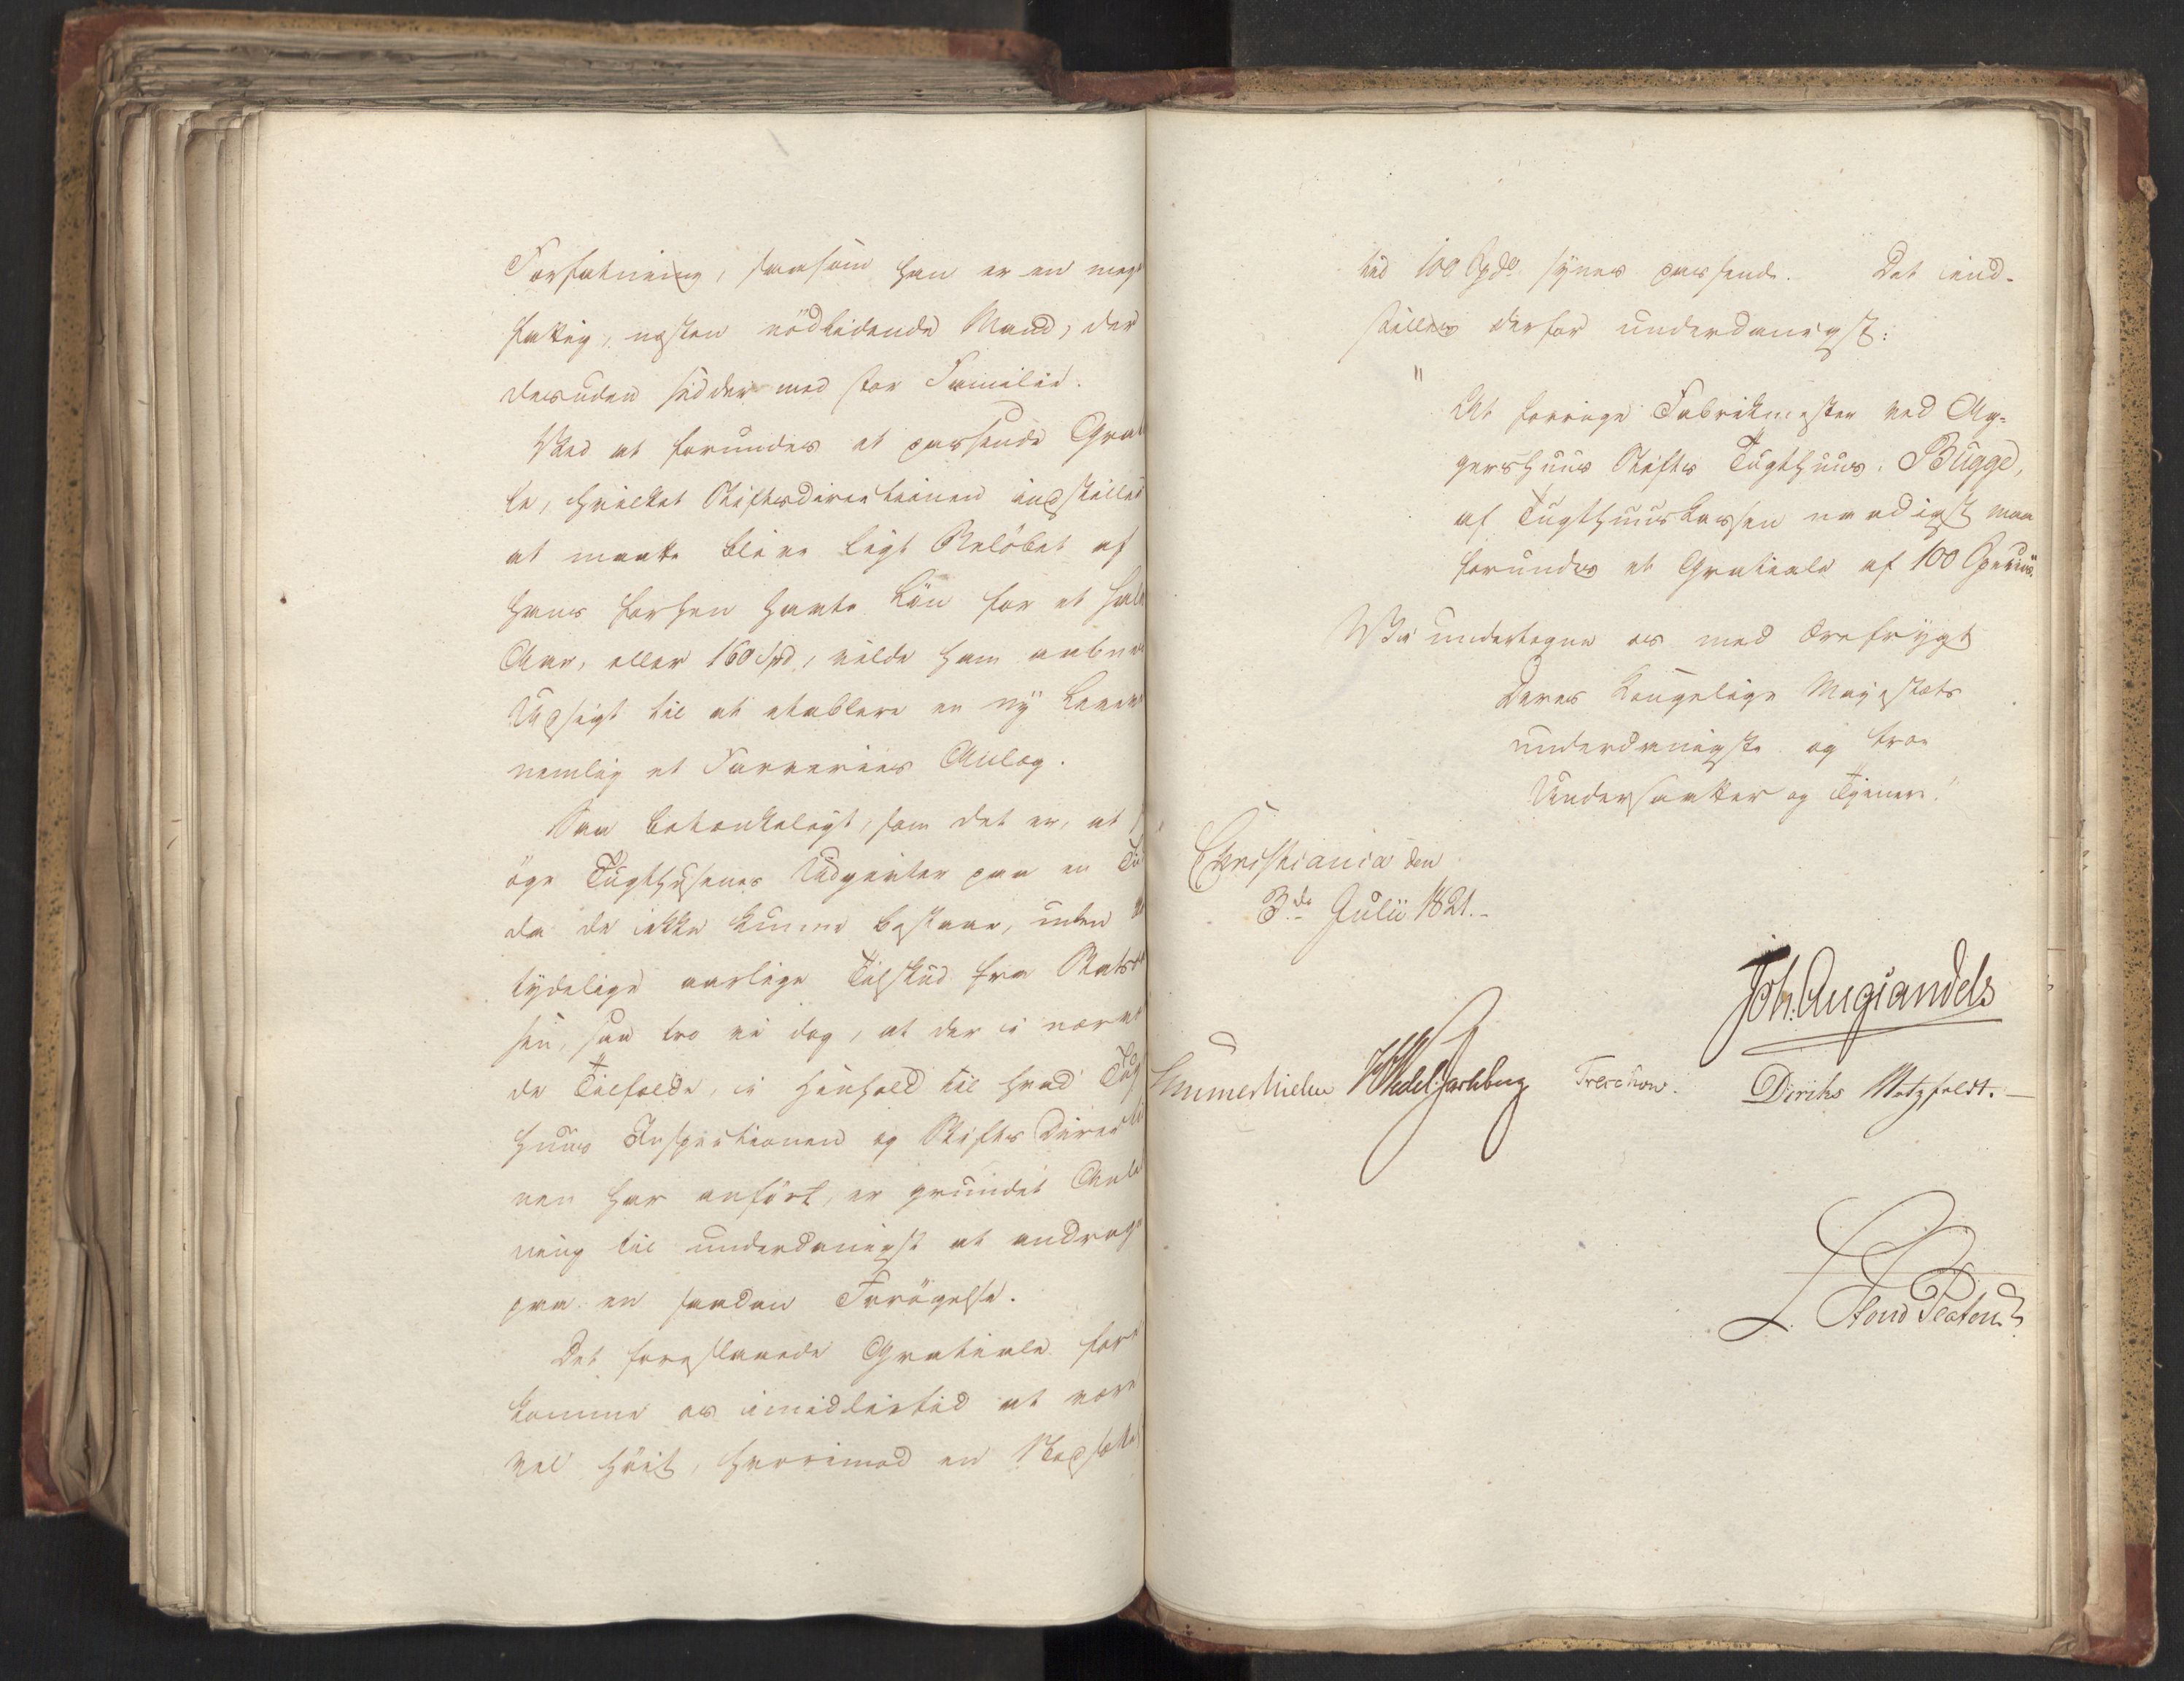 Forfatning, saasom han er en meget
fattig, nesten nödlidende Mand, der
desuden sidder med stor Familie.
Ved at forundes et passende Grat
le, hvilket Stiftsdirectionen indstiller
at maatte blive ligt Beløbet af
hans forhen havte Lön for et halv
Aar, eller 160 Spd, vilde ham aabnes
Udsigt til at etablere en ny Levevei
nemlig et Farveries Anlæg.
Saa betænkeligt, som det er, at
öge Tugthusenes Udgivter paa en Tid
da de ikke kunne bestaae, uden
tydelige aarlige Tilskud fra Statskas
sen, saa tro vi dog, at der i nærvæ
de Tilfælde, i Henhold til hvad Tugt
huus Inspectionen og Stifts Directio
nen har anfört, er grundet Anled
ning til underdanigst at andrage
paa en saadan Forögelse.
Det foreslaaede Gratiale fore
komme os imidlertid at være
vel höit, hvorimod en Nedsættel
ted 100 Spd synes passende. Det ind-
stilles derfor underdanigst:
"At forrige Fabrikmester ved Ag-
gershuus Stifts Tugthuus, Bugge,
af Tugthuuskassen naadigst maa
forundes et Gratiale af 100 Species."
Vi undertegne os med Ærefrygt
Deres Kongelige Majestæts
underdanigste og troe
Undersaatter og Tjenere.
Christiania den
3de Julii 1821.-
Joh: Aug: Sandels
Sommerhielm HWedelJarlsberg Treschow. Diriks Motzfeldt.-
L. von Platen